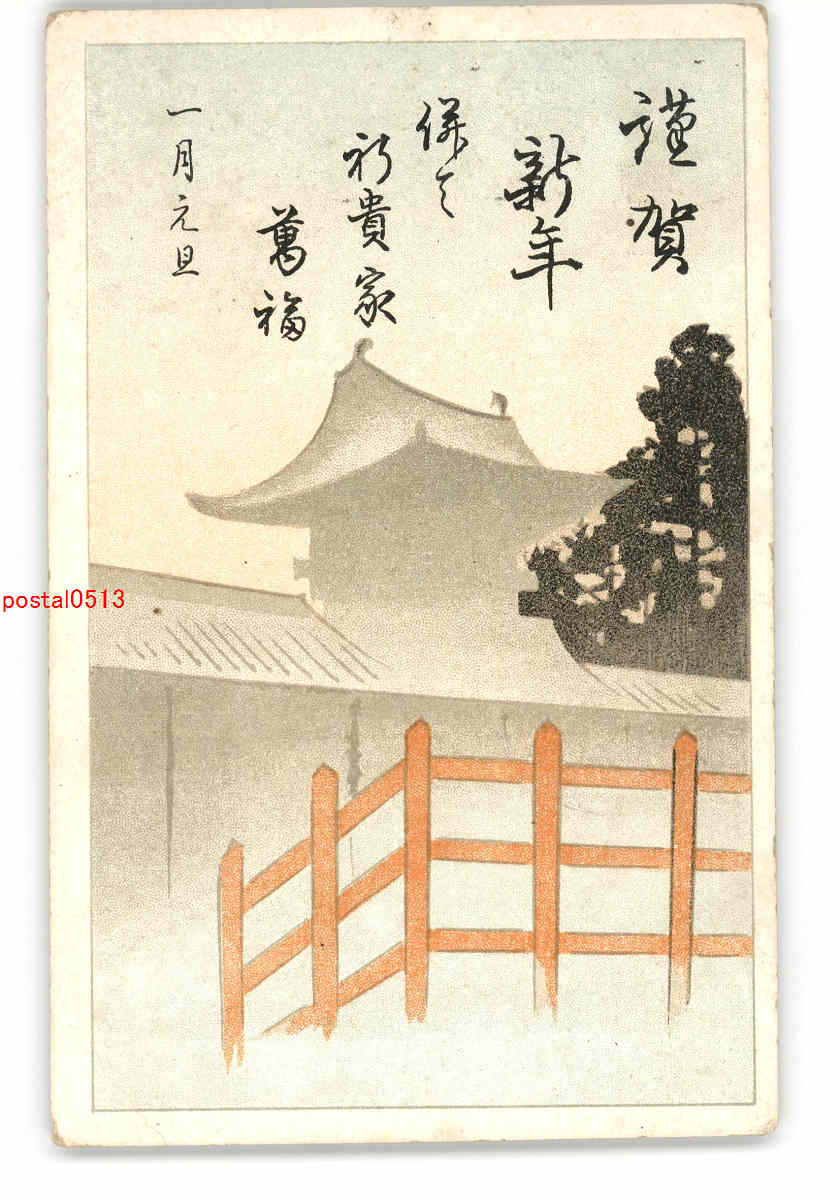 謹賀
新年
併て
祈貴家
萬福
一月元旦
postal0513